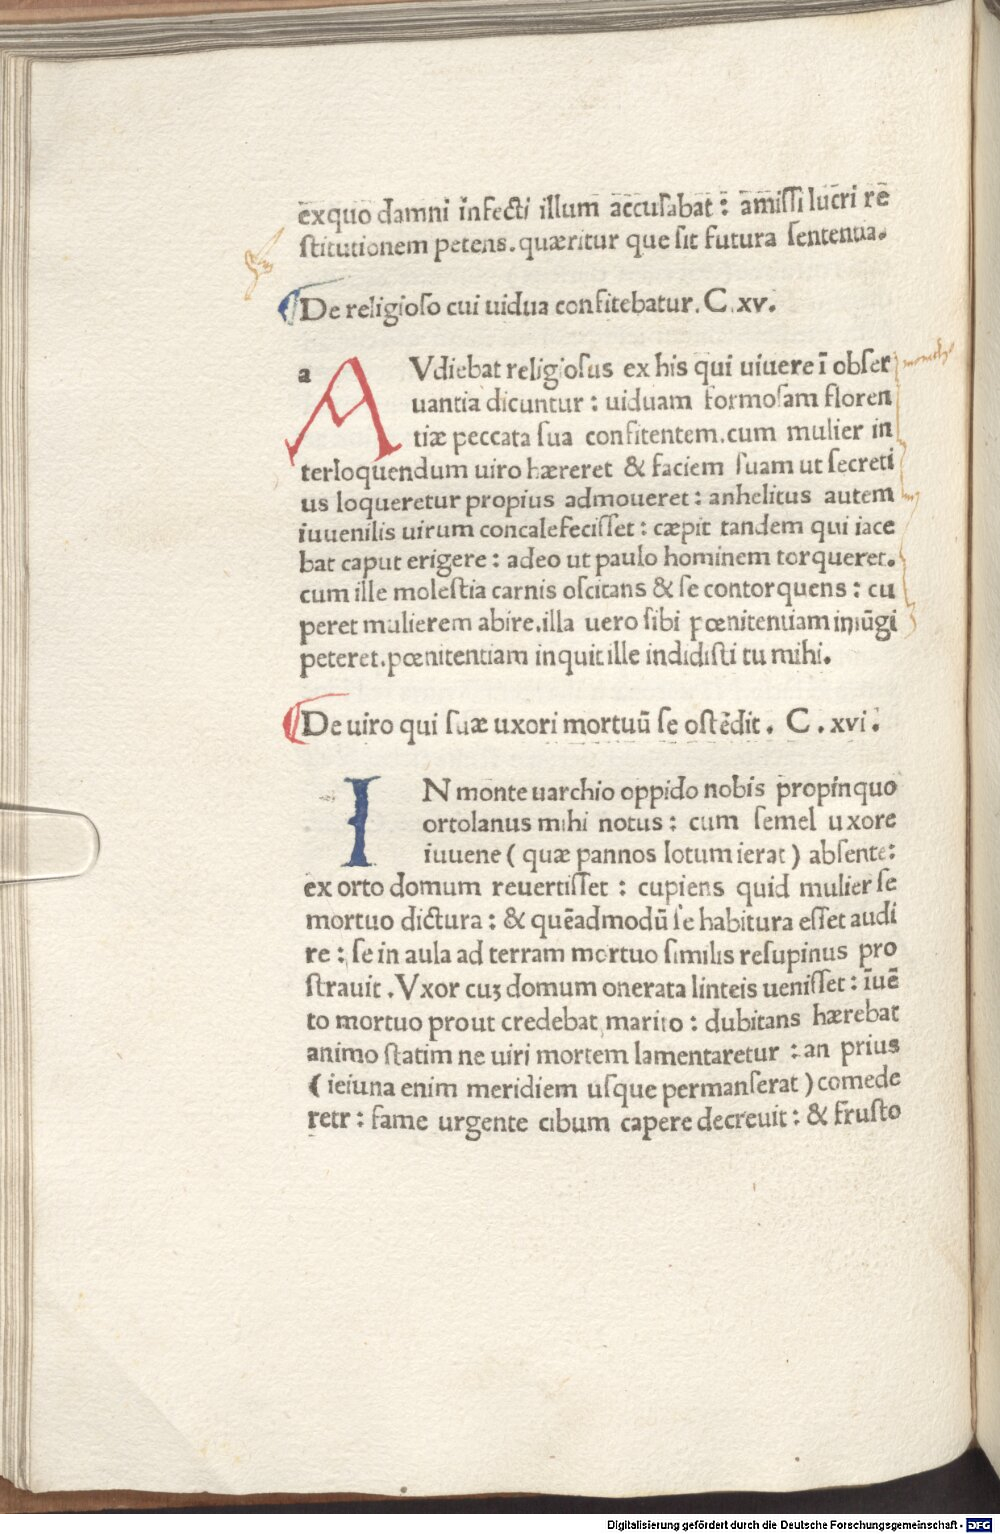 exquo damni infecti illum accusabat : amissi lucri rē
stitutionem petens. quæritur que sit futura sententia.
De religioso cui uidua confitebatur. C. xv.
a
AVdiebat religiosus ex his qui uiuere ī obser
uantia dicuntur : uiduam formosam floren
tiæ peccata sua confitentem. cum mulier in
terloquendum uiro hæreret & faciem suam ut secreti
us loqueretur propius admoueret : anhelitus autem
iuuenilis uirum concalefecisset : cæpit tandem qui iace
bat caput erigere : adeo ut paulo hominem torqueret.
cum ille molestia carnis oscitans & se contorquens : cu
peret mulierem abire. illa uero sibi pœnitentiam iniūgi
peteret. pœnitentiam inquit ille indidisti tu mihi.
De uiro qui suæ uxori mortuū se ostēdit. C. xvi.
IN monte uarchio oppido nobis propinquo
ortolanus mihi notus : cum semel uxore
iuuene ( quæ pannos lotum ierat ) absente:
ex orto domum reuertisset : cupiens quid mulier se
mortuo dictura : & quēadmodū se habitura esset audi
re : se in aula ad terram mortuo similis resupinus pro
strauit. Vxor cuꝫ domum onerata linteis uenisset : īuē
to mortuo prout credebat marito : dubitans hærebat
animo statim ne uiri mortem lamentaretur : an prius
( ieiuna enim meridiem usque permanserat ) comede
retr : fame urgente cibum capere decreuit : & frusto
Digitalisierung gefördert durch die Deutsche Forschungsgemeinschaft - DFG